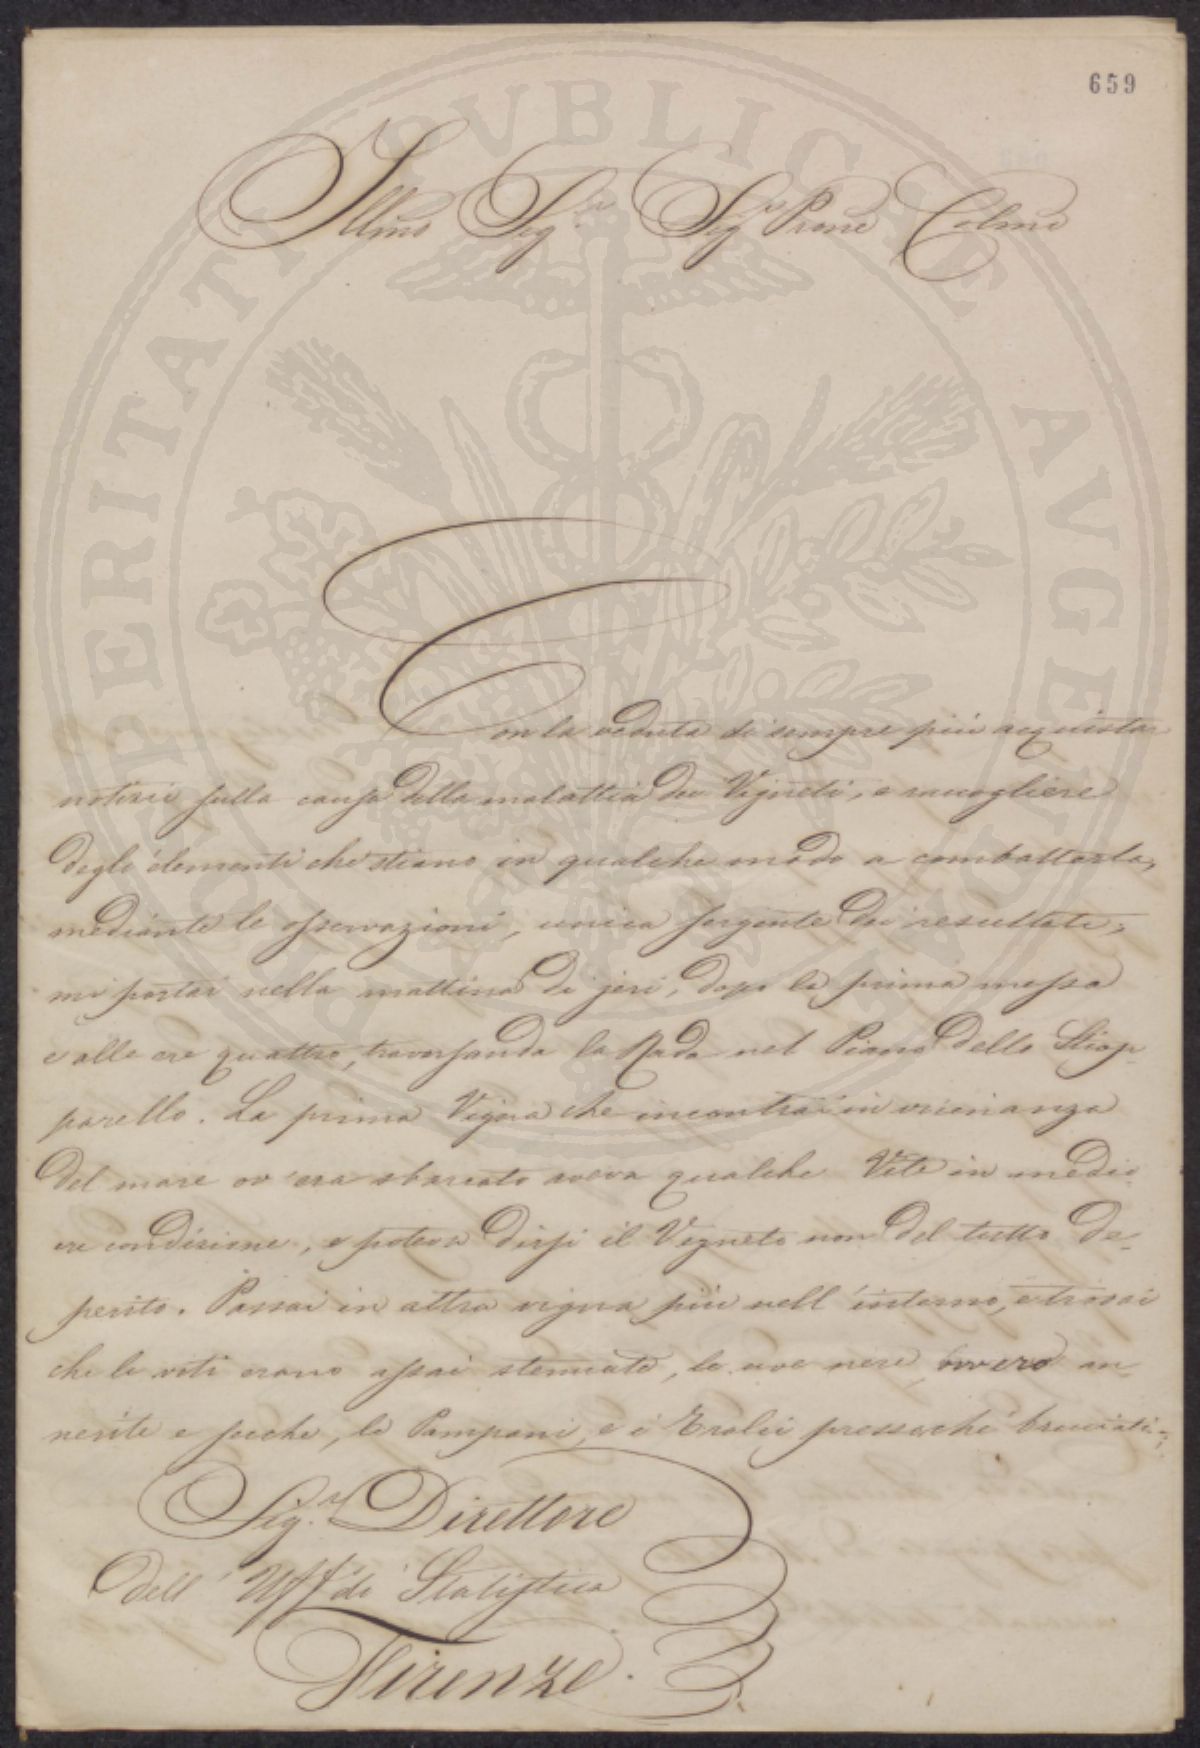 659
Illmo Sig.r Sig.r Prone Colmo
Con la veduta di sempre più acquistar
notizie sulla causa della malattia dei Vigneti, e raccogliere
degli elementi che stiano in qualche modo a combatterla,
mediante le osservazioni, unica sorgente dei resultati,
mi portai nella mattina di jeri, dopo la prima messa
e alle ore quattro, traversando la Rada nel Piano dello Schiop-
parello. La prima Vigna che incontrai in vicinanza
del mare ov'era sbarcato aveva qualche Vite in medio-
cre condizione, e poteva dirsi il Vigneto non del tutto de-
perito. Passai in altra vigna più nell'interno, e trovai
che le viti erano assai stenuate, le uve nere, ovvero an-
nerite e poche, le Pampani, e i Tralci pressochè bruciati;
Sig.r Direttore
dell'Uff. di Statistica
Firenze.
PROSPERITATI PVBLICAE AVGENDAE